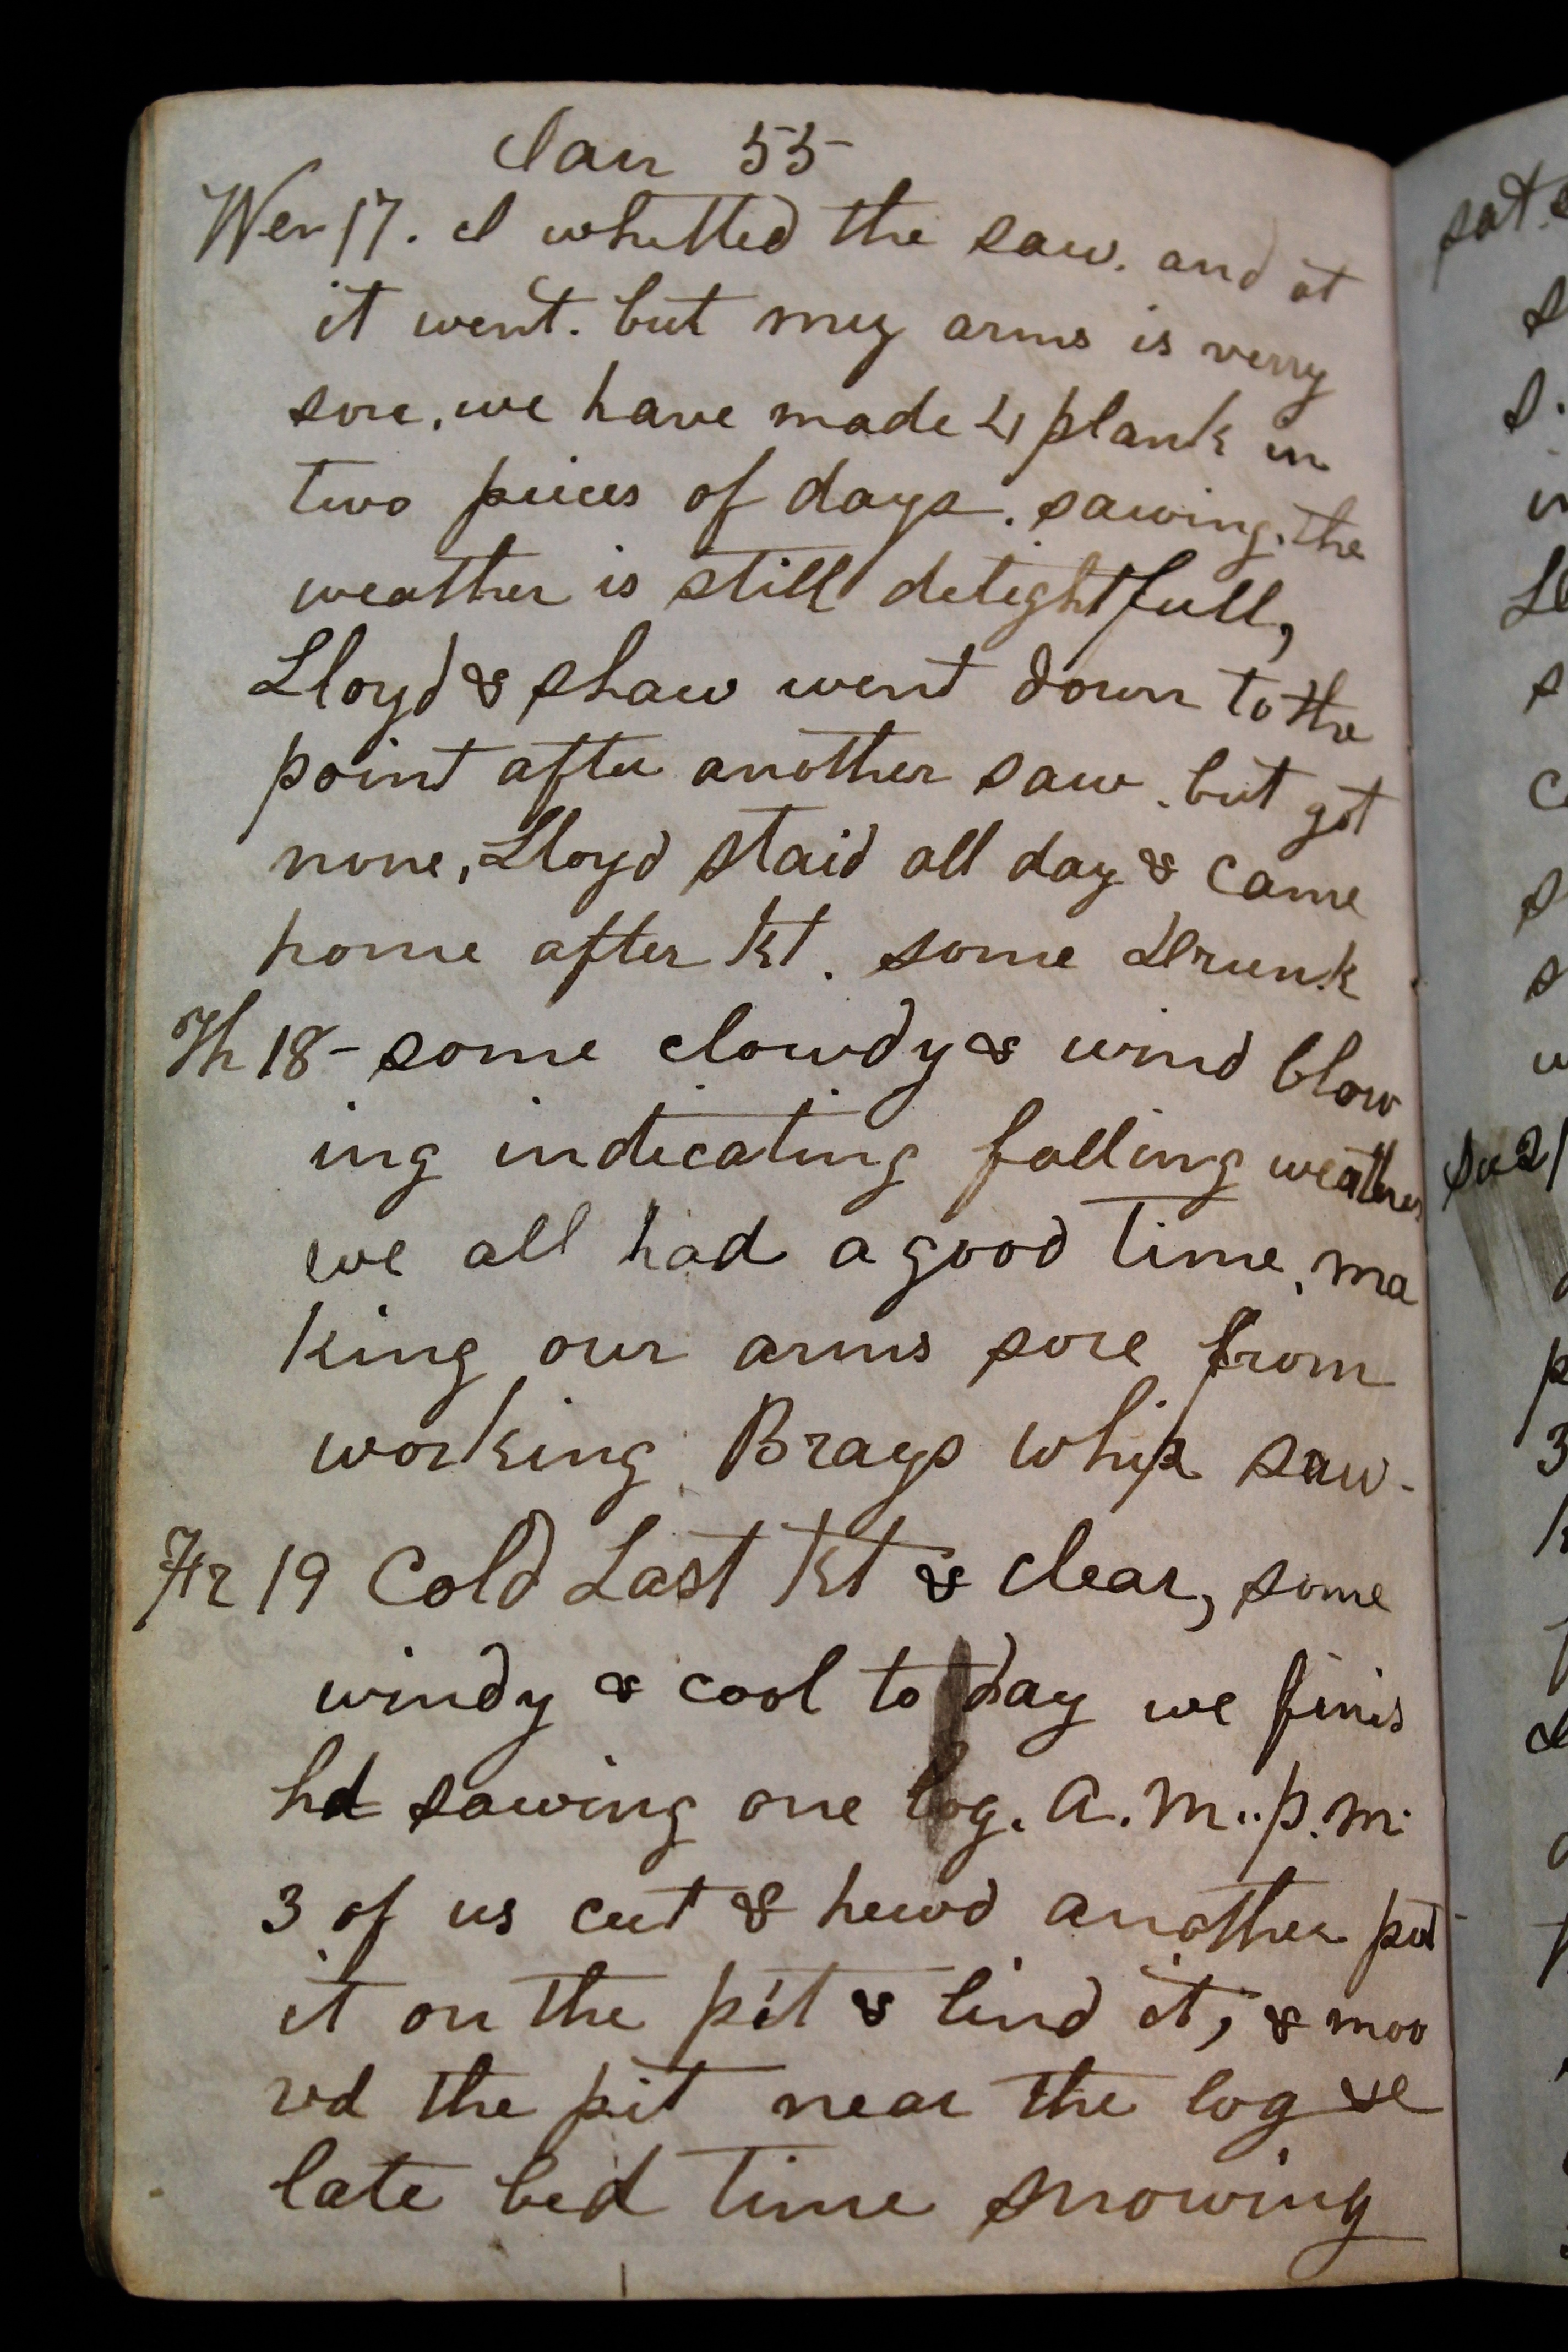 Jan 55
Wen 17. I whitted the saw. and at
it went. but my arms is verry
sore, we have made 4 plank in
two pieces of days. sawing. the
weather is still delightfull,
Lloyd & Shaw went down to the
point after another saw. but got
none, Lloyd staid all day & came
home after Kt. some Drunk
Th 18 - some clowdy & wind blow
ing indicating falling weather
we all had a good time, ma
king our arms sore from
working Brays whip saw.
Fr 19 Cold Last Kt & clear, some
windy & cool to day we finis
hd sawing one log. A.M.. p.m.
3 of us cut & hewd another put
it on the pit & lind it, & moo
vd the pit near the log &c
late bed time snowing
sat
su 21